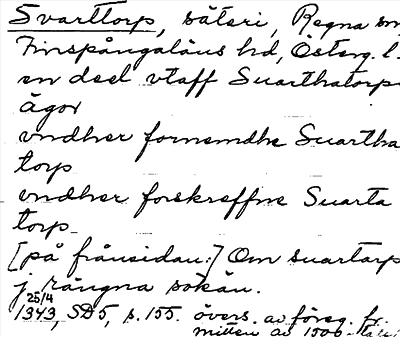 Svarttorp, säteri, Regna sn
Finspångaläns hd, Österg. l.
en deel vtaff Suarthatorps
ägor
vndher fornemdhe Suartha
torp
vndher forskreffne Suarta
torp
[på frånsidan:] Om suartarp
j rängna sokän.
25/4
1343, SD5, s. 155. övers. av föreg. fr.
mitten av 1500-talet